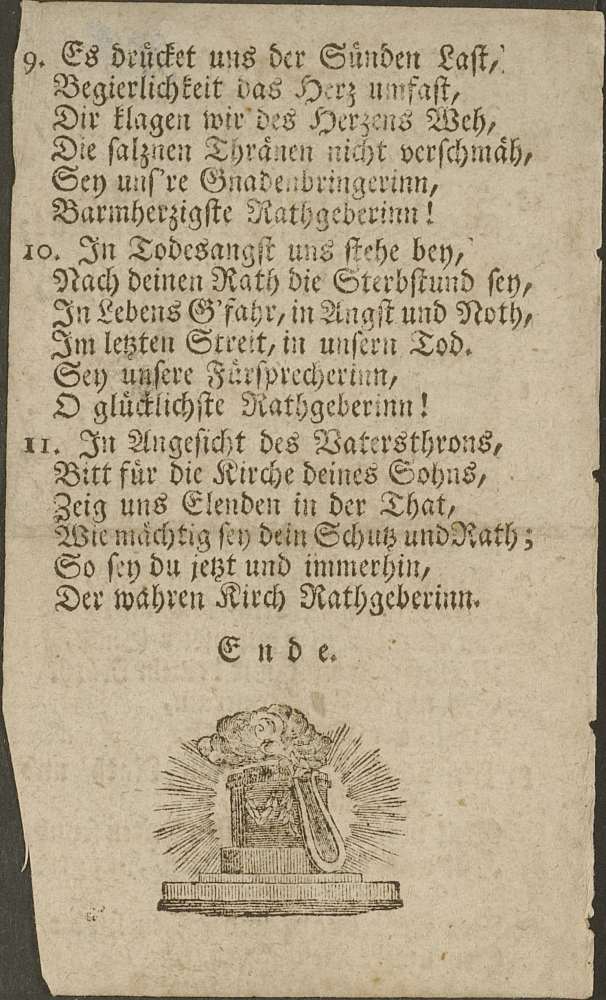 9. Es drücket uns der Sünden Last,
Begierlichkeit das Herz umfast,
Dir klagen wir des Herzens Weh,
Die salznen Thränen nicht verschmäh,
Sey uns're Gnadenbringerinn,
Barmherzigste Rathgeberinn!
10. In Todesangst uns stehe bey,
Nach deinen Rath die Sterbstund sey,
In Lebens G'fahr, in Angst und Noth,
Im letzten Streit, in unsern Tod.
Sey unsere Fürsprecherinn,
O glücklichste Rathgeberinn!
11. In Angesicht des Vatersthrons,
Bitt für die Kirche deines Sohns,
Zeig uns Elenden in der That,
Wie mächtig sey dein Schutz und Rath;
So sey du jetzt und immerhin,
Der wahren Kirch Rathgeberinn.
Ende.